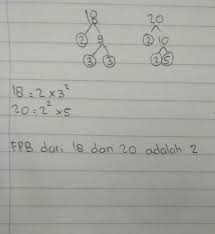 18 20
2 9 2 10
3 3 2 5
18 = 2 × 3²
20 = 2² × 5
FPB dari 18 dan 20 adalah 2